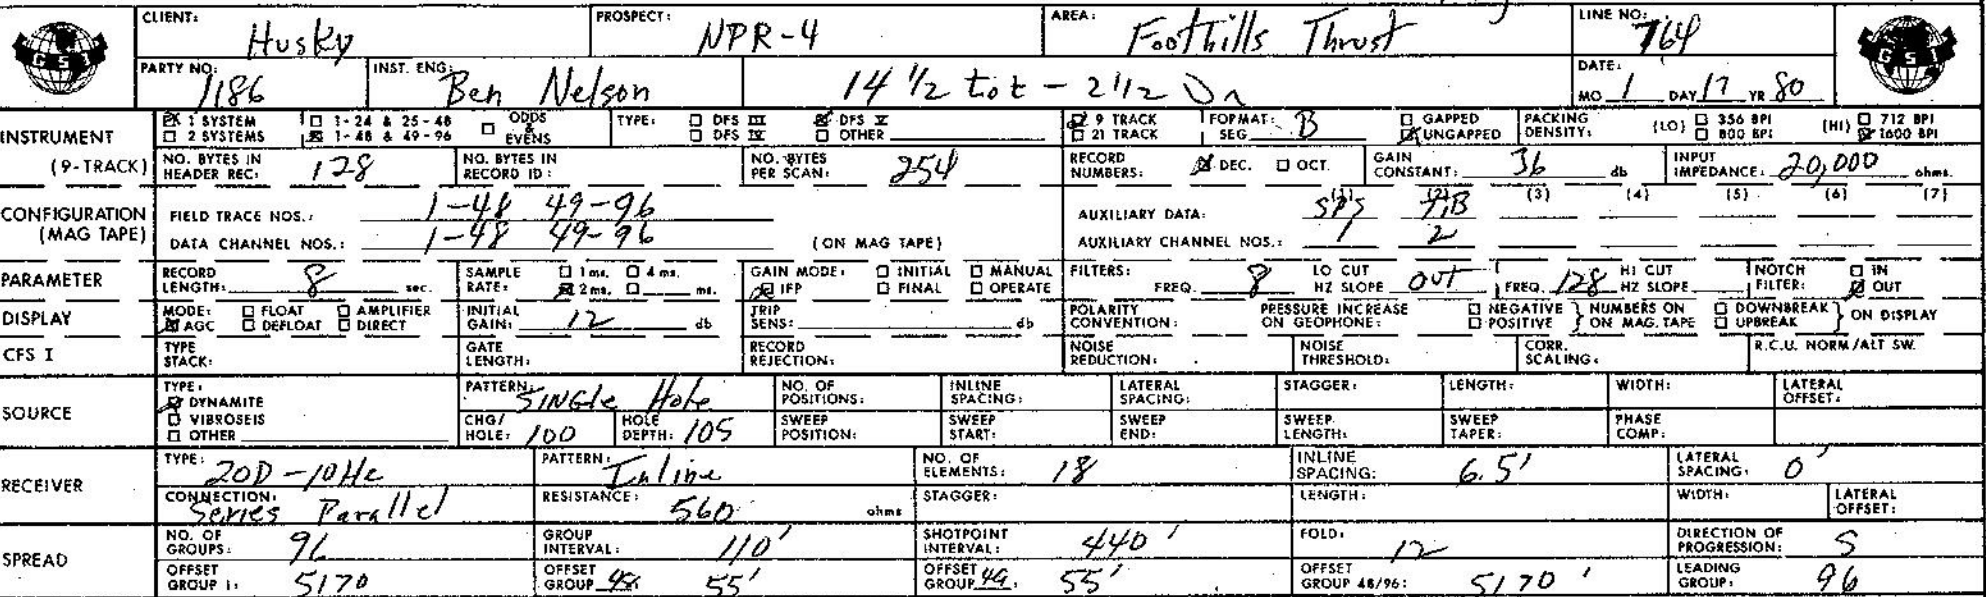 CLIENT: Husky PROSPECT: NPR-4 AREA: Foothills Thrust LINE NO: 764
GSI GSI
PARTY NO: 1186 INST. ENG: Ben Nelson 14 1/2 tot - 2 1/2 Dn DATE: MO 1 DAY 17 YR 80
INSTRUMENT ☒ 1 SYSTEM ☐ 1-24 & 25-48 ☐ ODDS & EVENS TYPE: ☐ DFS III ☒ DFS V ☒ 9 TRACK FORMAT: SEG B ☐ GAPPED PACKING DENSITY: (LO) ☐ 356 BPI (HI) ☐ 712 BPI
☐ 2 SYSTEMS ☒ 1-48 & 49-96 ☐ DFS IV ☐ OTHER ☐ 21 TRACK ☒ UNGAPPED ☐ 800 BPI ☒ 1600 BPI
(9-TRACK) NO. BYTES IN HEADER REC: 128 NO. BYTES IN RECORD ID: NO. BYTES PER SCAN: 254 RECORD NUMBERS: ☒ DEC. ☐ OCT. GAIN CONSTANT: 36 db INPUT IMPEDANCE: 20,000 ohms.
CONFIGURATION (MAG TAPE) FIELD TRACE NOS.: 1-48 49-96 AUXILIARY DATA: (1) SPS (2) TB (3) (4) (5) (6) (7)
DATA CHANNEL NOS.: 1-48 49-96 (ON MAG TAPE) AUXILIARY CHANNEL NOS.: 1 2
PARAMETER RECORD LENGTH: 8 sec. SAMPLE RATE: ☐ 1 ms. ☐ 4 ms. ☒ 2 ms. ☐ ms. GAIN MODE: ☐ INITIAL ☐ MANUAL ☒ IFP ☐ FINAL ☐ OPERATE FILTERS: FREQ. 8 LO CUT HZ SLOPE OUT FREQ. 128 HI CUT HZ SLOPE NOTCH FILTER: ☐ IN ☒ OUT
DISPLAY MODE: ☐ FLOAT ☐ AMPLIFIER ☒ AGC ☐ DEFLOAT ☐ DIRECT INITIAL GAIN: 12 db TRIP SENS: db POLARITY CONVENTION: PRESSURE INCREASE ON GEOPHONE: ☐ NEGATIVE ☐ POSITIVE } NUMBERS ON ON MAG. TAPE ☐ DOWNBREAK ☐ UPBREAK } ON DISPLAY
CFS I TYPE STACK: GATE LENGTH: RECORD REJECTION: NOISE REDUCTION: NOISE THRESHOLD: CORR. SCALING: R.C.U. NORM/ALT SW.
SOURCE TYPE: ☒ DYNAMITE ☐ VIBROSEIS ☐ OTHER PATTERN: SINGle Hole NO. OF POSITIONS: INLINE SPACING: LATERAL SPACING: STAGGER: LENGTH: WIDTH: LATERAL OFFSET:
CHG/HOLE: 100 HOLE DEPTH: 105 SWEEP POSITION: SWEEP START: SWEEP END: SWEEP LENGTH: SWEEP TAPER: PHASE COMP:
RECEIVER TYPE: 20D - 10Hz PATTERN: Inline NO. OF ELEMENTS: 18 INLINE SPACING: 6.5' LATERAL SPACING: 0'
CONNECTION: Series Parallel RESISTANCE: 560 ohms STAGGER: LENGTH: WIDTH: LATERAL OFFSET:
SPREAD NO. OF GROUPS: 96 GROUP INTERVAL: 110' SHOTPOINT INTERVAL: 440' FOLD: 12 DIRECTION OF PROGRESSION: S
OFFSET GROUP 1: 5170 OFFSET GROUP 48: 55' OFFSET GROUP 49: 55' OFFSET GROUP 48/96: 5170' LEADING GROUP: 96